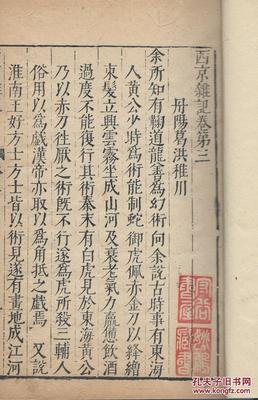 西京雜記卷第三
丹陽葛洪稚川
余所知有鞠道龍善爲幻術向余說古時事有東海
人黃公少時爲術能制蛇御虎佩赤金刀以絳繒
束髮立興雲霧坐成山河及衰老氣力羸憊飲酒
過度不能復行其術秦末有白虎見於東海黃公
乃以赤刀往厭之術旣不行遂爲虎所殺三輔人
俗用以爲戲漢帝亦取以爲角抵之戲焉 又說
淮南王好方士方士皆以術見遂有畫地成江河